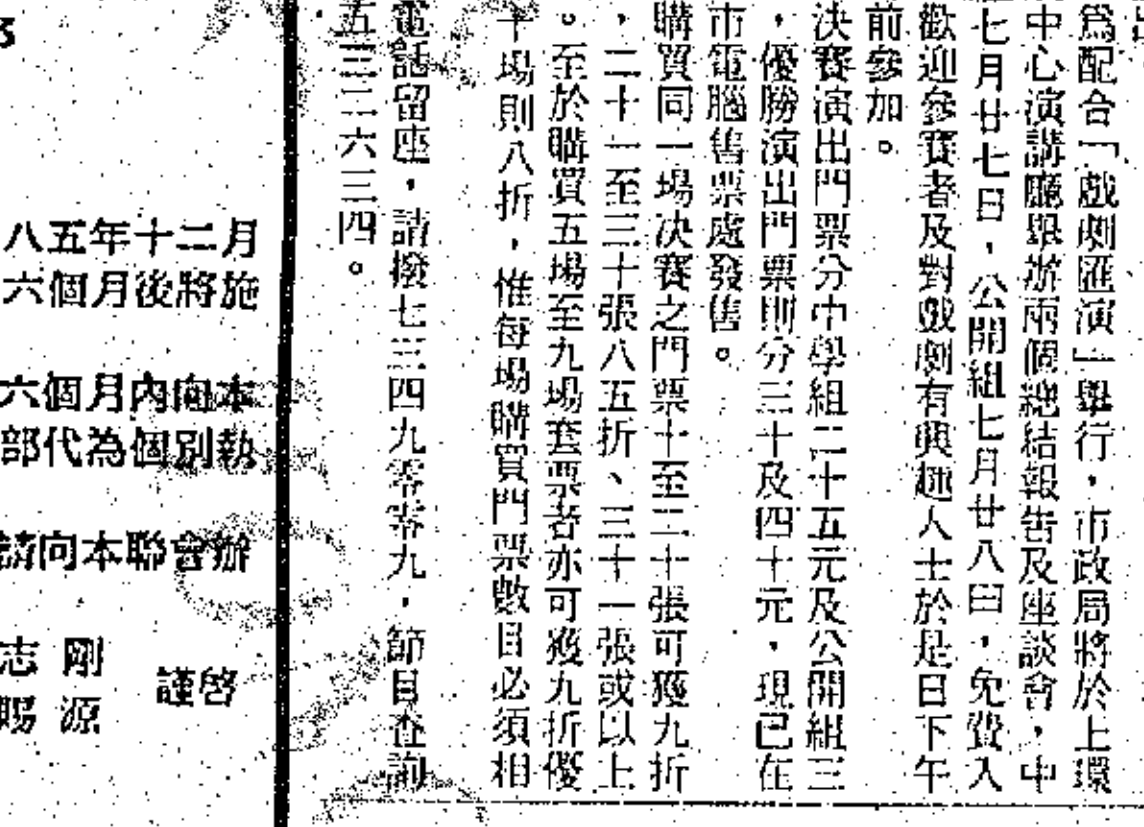 爲配合「戲劇匯演」舉行，市政局將於上環
中心演講廳舉辦兩個總結報告及座談會，中
七月廿七日，公開組七月廿八日，免費入
歡迎參賽者及對戲劇有興趣人士於是日下午
前參加。
決賽演出門票分中學組二十五元及公開組三
，優勝演出門票則分三十及四十元，現已在
市電腦售票處發售。
購買同一場決賽之門票十至二十張可獲九折
，二十一至三十張八五折、三十一張或以上
。至於購買五場至九場套票者亦可獲九折優
場則八折，惟每場購買門票數目必須相
電話留座，請撥七三四九零零九，節目查詢
五三三二六三四。
八五年十二月
六個月後將施
六個月內向本
部代為個別執
請向本聯會辦
志 剛
賜 源
謹啓